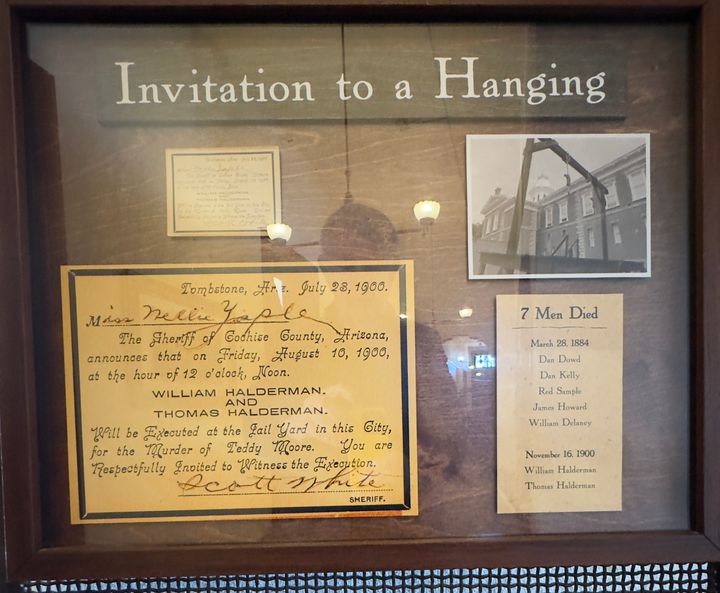 Invitation to a Hanging
WILLIAM HALDERMAN
THOMAS HALDERMAN
Tombstone, Ariz. July 23, 1900.
Miss Nellie Yaple
The Sheriff of Cochise County, Arizona,
announces that on Friday, August 10, 1900,
at the hour of 12 o'clock, Noon.
WILLIAM HALDERMAN.
AND
THOMAS HALDERMAN.
Will be Executed at the Jail Yard in this City,
for the Murder of Teddy Moore. You are
Respectfully Invited to Witness the Execution.
Scott White
SHERIFF.
7 Men Died
March 28, 1884
Dan Dowd
Dan Kelly
Red Sample
James Howard
William Delaney
November 16, 1900
William Halderman
Thomas Halderman